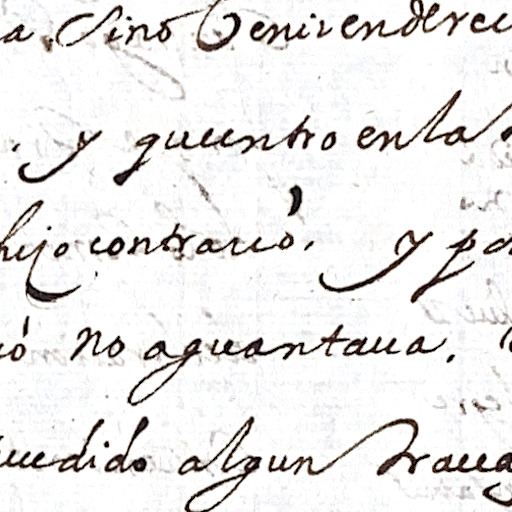 a. sino venir en derec
. y quentro en la
hijo contrario. y po
ió no aguantaua.
uedido algun traua